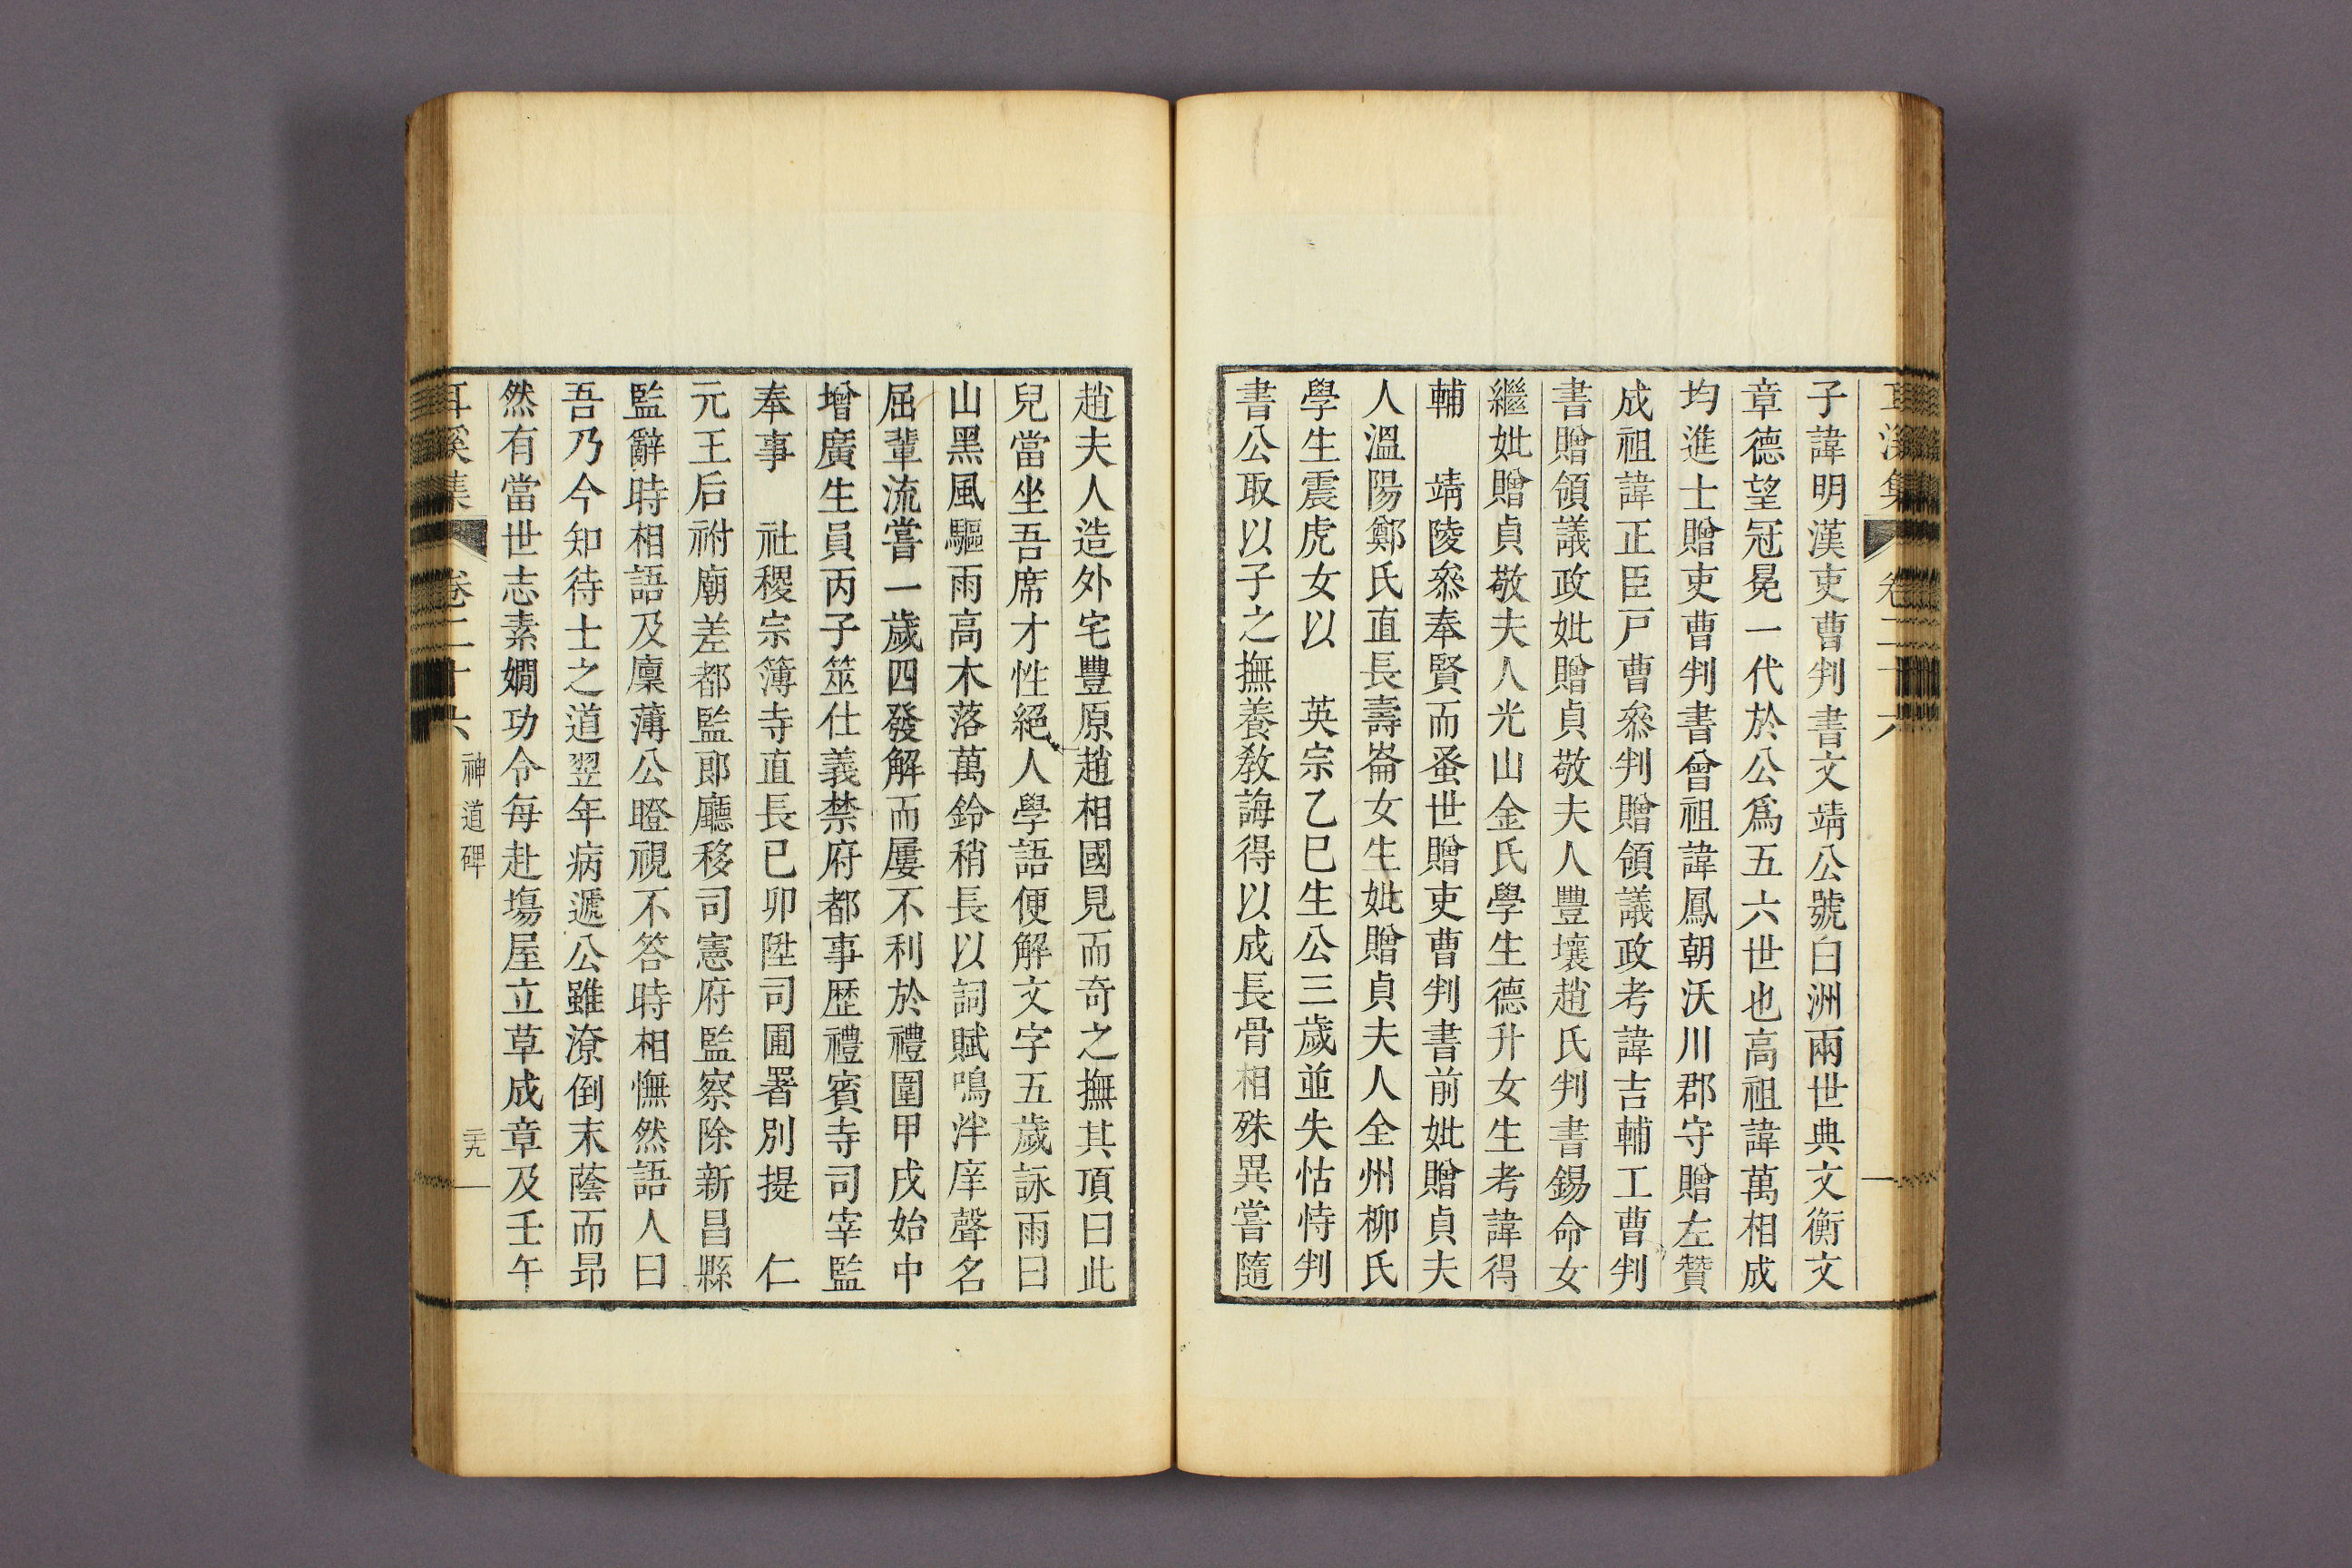 子諱明漢吏曹判書文靖公號白洲兩世典文衡文
章德望冠冕一代於公爲五六世也高祖諱萬相成
均進士贈吏曹判書曾祖諱鳳朝沃川郡守贈左贊
成祖諱正臣戸曹叅判贈領議政考諱吉輔工曹判
書贈領議政妣贈貞敬夫人豐壤趙氏判書錫命女
繼妣贈貞敬夫人光山金氏學生德升女生考諱得
輔　靖陵叅奉賢而蚤世贈吏曹判書前妣贈貞夫
人溫陽鄭氏直長壽崙女生妣贈貞夫人全州柳氏
學生震虎女以　英宗乙巳生公三歲並失怙恃判
書公取以子之撫養敎誨得以成長骨相殊異嘗隨
趙夫人造外宅豐原趙相國見而奇之撫其頂曰此
兒當坐吾席才性絕人學語便解文字五歲詠雨曰
山黑風驅雨高木落萬鈴稍長以詞賦鳴泮庠聲名
屈輩流嘗一歲四發解而屢不利於禮圍甲戌始中
增廣生員丙子筮仕義禁府都事歷禮賓寺司宰監
奉事　社稷宗簿寺直長已卯陞司圃署別提　仁
元王后祔廟差都監郞廳移司憲府監察除新昌縣
監辭時相語及廩薄公瞪視不答時相憮然語人曰
吾乃今知待士之道翌年病遞公雖潦倒末蔭而昂
然有當世志素嫺功令每赴塲屋立草成章及壬午
耳溪集　卷二十六　神道碑　二十九